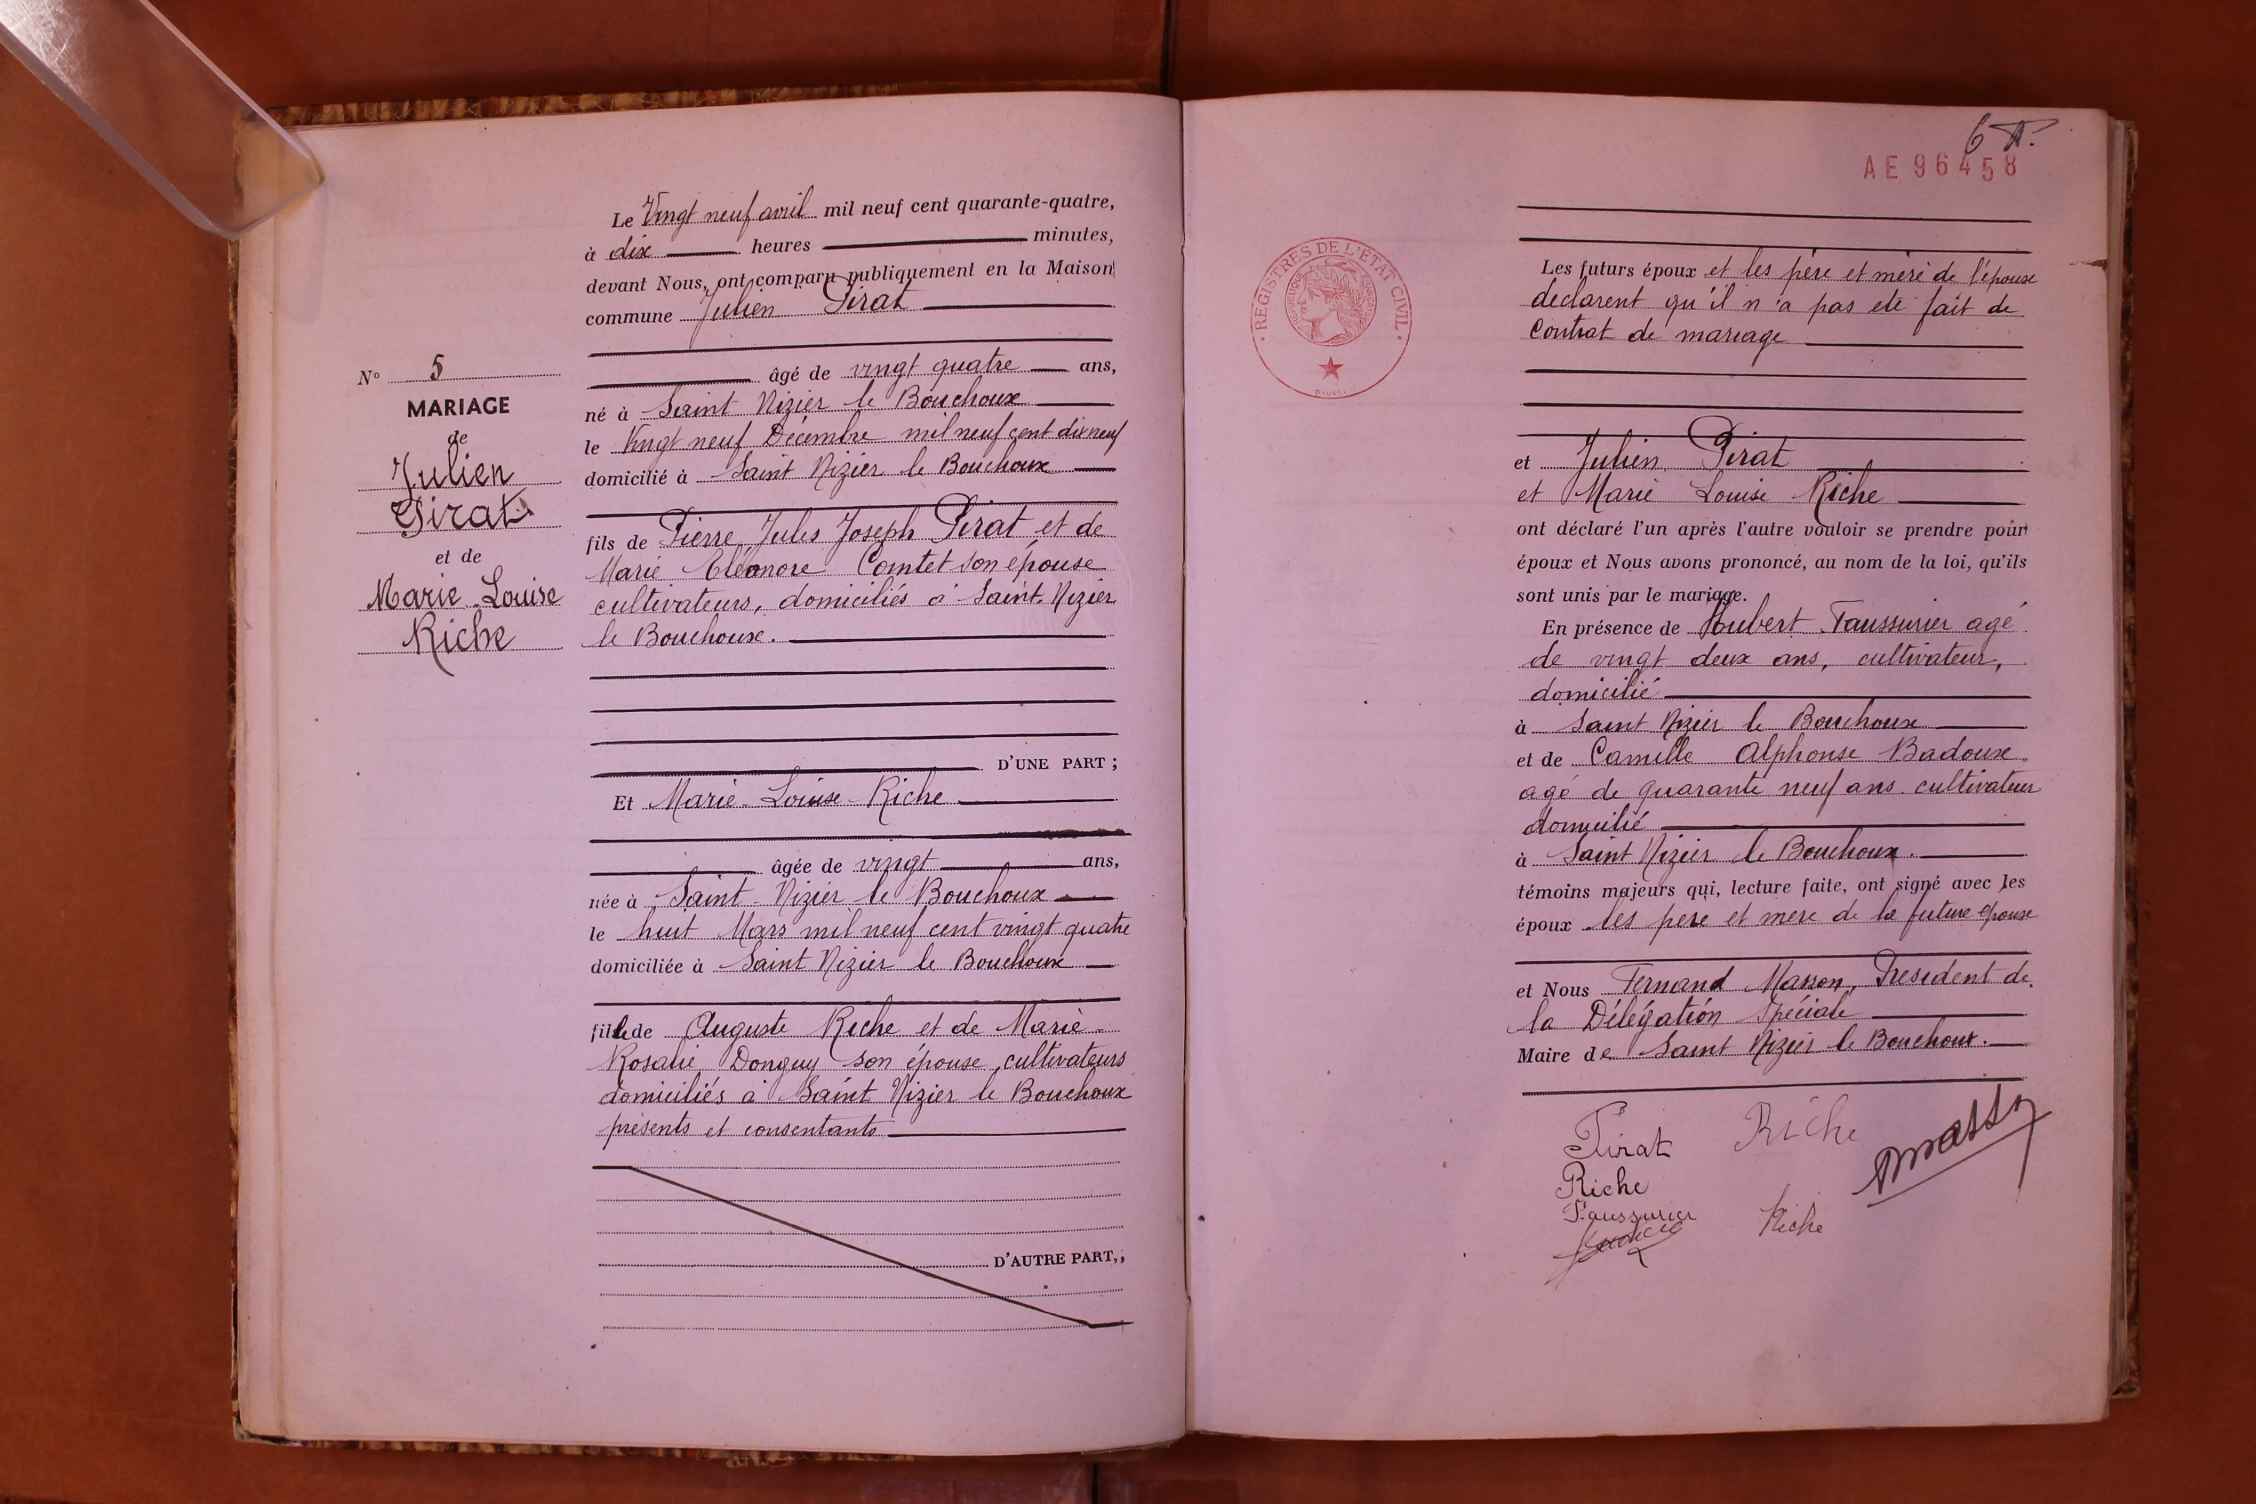 N° 5
MARIAGE
de
Julien
Pirat
et de
Marie Louise
Riche
Le Vingt neuf avril mil neuf cent quarante-quatre,
à dix heures minutes,
devant Nous, ont comparu publiquement en la Maison
commune Julien Pirat
âgé de vingt quatre ans,
né à Saint Nizier le Bouchoux
le Vingt neuf Décembre mil neuf cent dix neuf
domicilié à Saint Nizier le Bouchoux
fils de Pierre Jules Joseph Pirat et de
Marie Eléonore Comtet son épouse
cultivateurs, domiciliés à Saint Nizier
le Bouchoux.
D'UNE PART ;
Et Marie Louise Riche
âgée de vingt ans,
née à Saint Nizier le Bouchoux
le huit Mars mil neuf cent vingt quatre
domiciliée à Saint Nizier le Bouchoux
fille de Auguste Riche et de Marie
Rosalie Donguy son épouse, cultivateurs
domiciliés à Saint Nizier le Bouchoux
présents et consentants
D'AUTRE PART,,
6
AE 96458
REGISTRES DE L'ÉTAT CIVIL
Les futurs époux et les père et mère de l'épouse
déclarent qu'il n'a pas été fait de
Contrat de mariage
et Julien Pirat
et Marie Louise Riche
ont déclaré l'un après l'autre vouloir se prendre pour
époux et Nous avons prononcé, au nom de la loi, qu'ils
sont unis par le mariage.
En présence de Hubert Faussurier agé
de vingt deux ans, cultivateur,
domicilié
à Saint Nizier le Bouchoux
et de Camille Alphonse Badoux
agé de quarante neuf ans cultivateur
domicilié
à Saint Nizier le Bouchoux.
témoins majeurs qui, lecture faite, ont signé avec les
époux les père et mère de la future épouse
et Nous Fernand Masson, Président de
la Délégation Spéciale
Maire de Saint Nizier le Bouchoux.
Pirat Riche
Masson
Riche
Faussurier
Riche